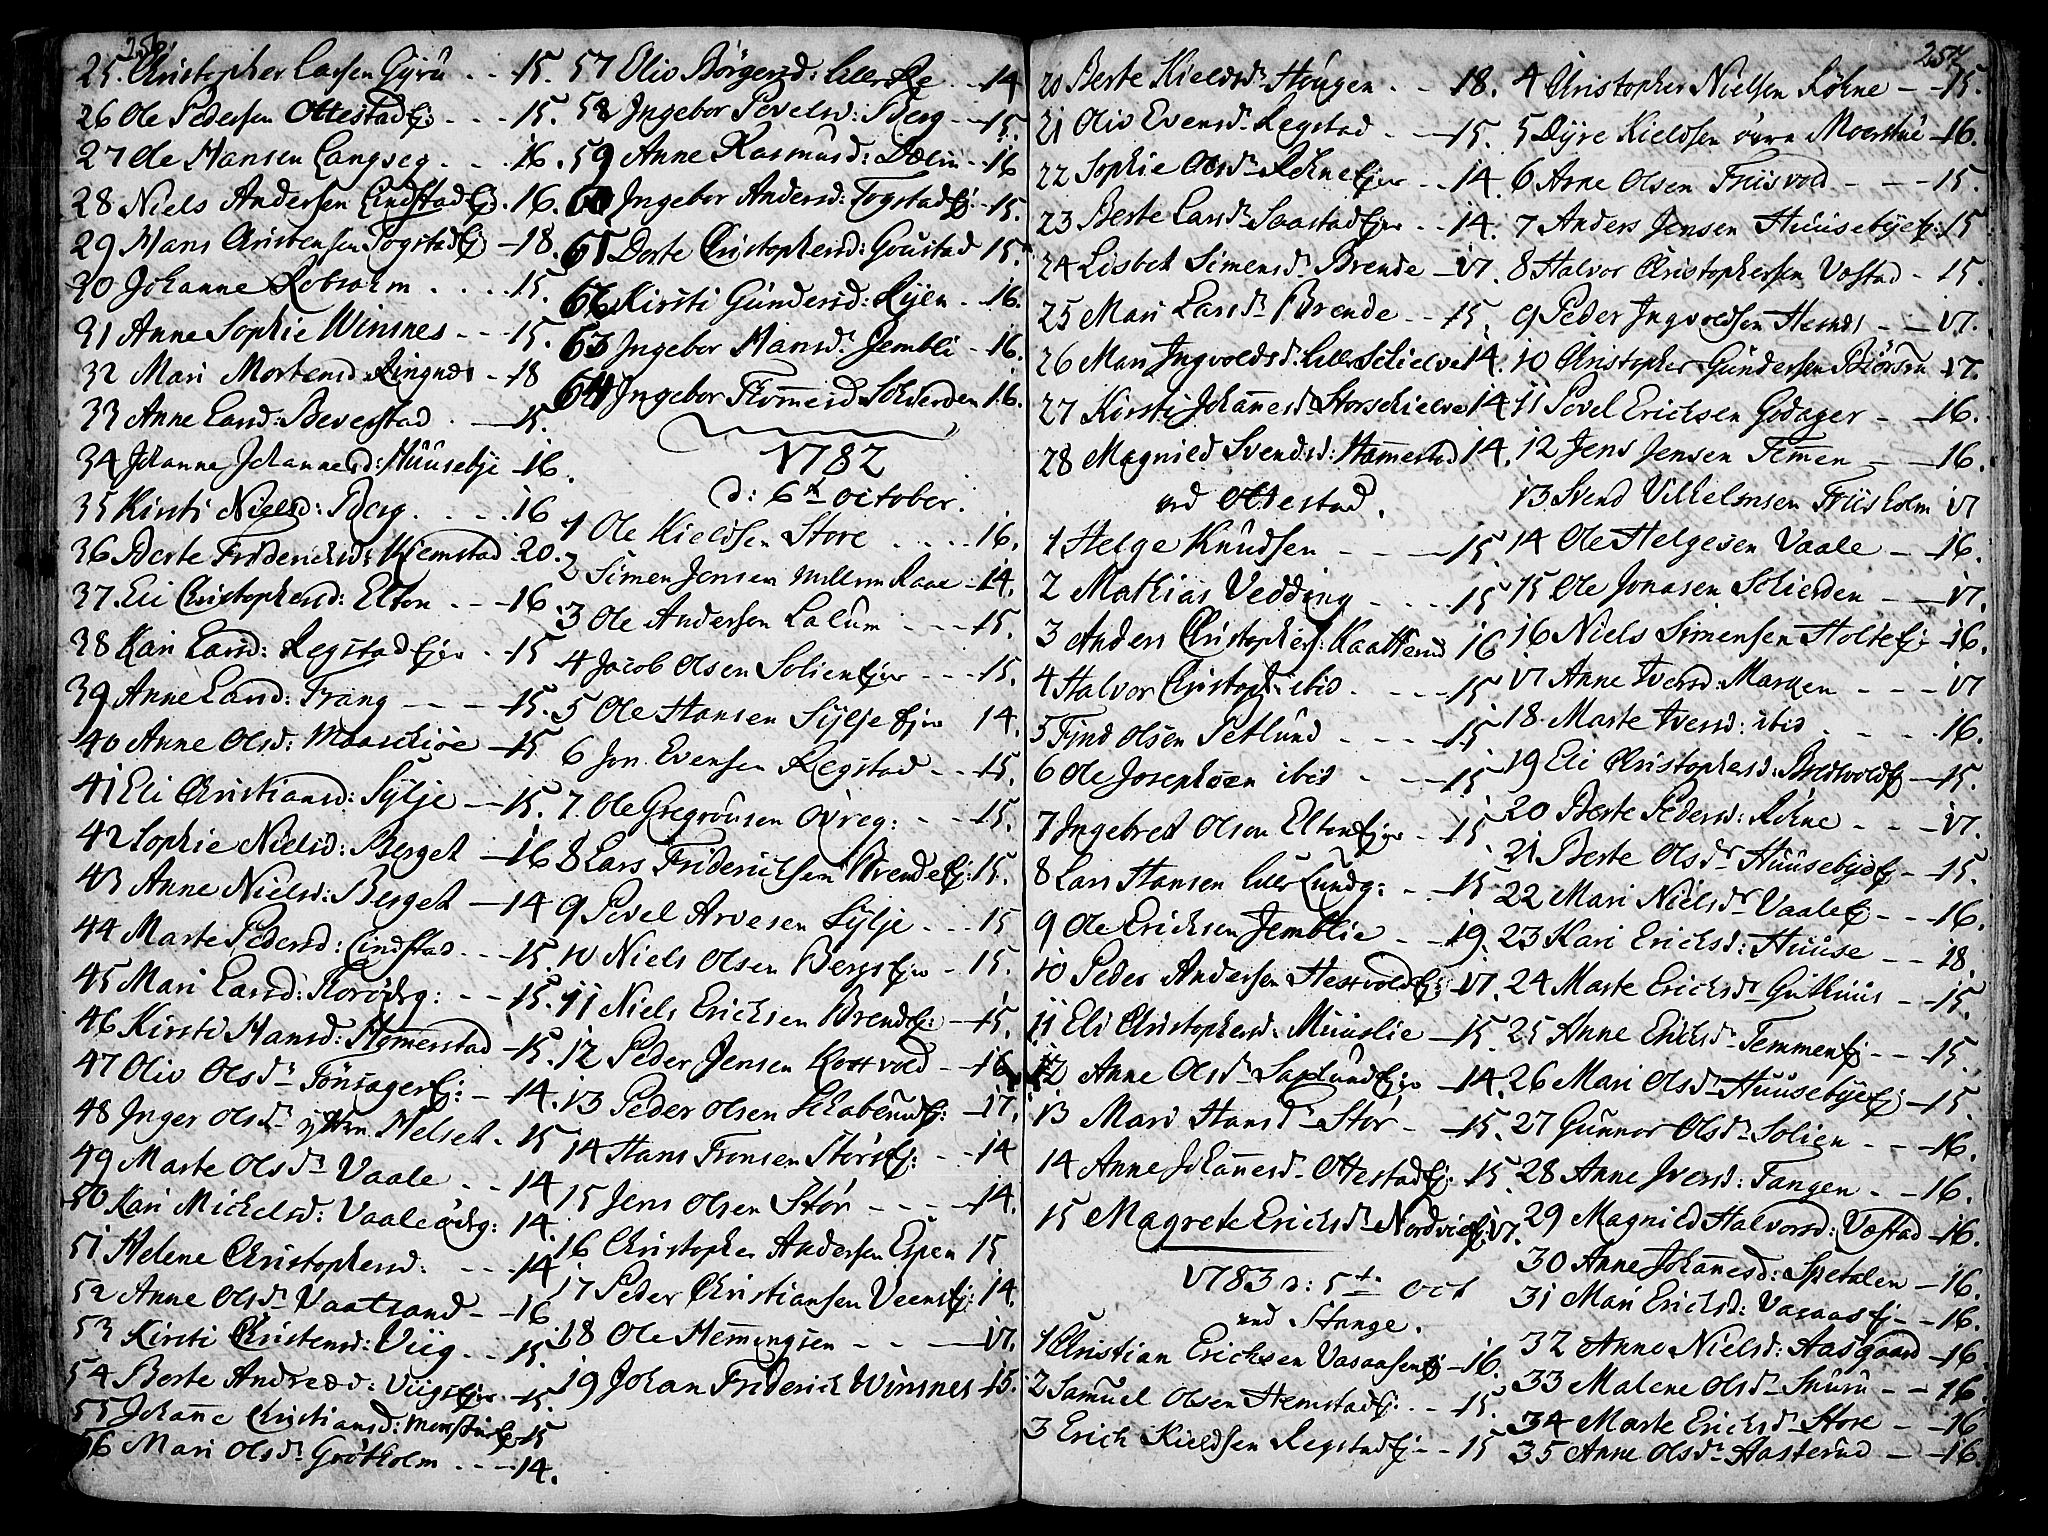 256.
25. Christopher Larsen Gyrü - - 15.
26 Ole Pedersen Ottestad Ej: - - - 15.
27 Ole Hansen Langseg - - - 16.
28 Niels Andersen Lindstad Ej. 16.
29 Hans Christensen Togstad Ej - 18.
30 Johanne Robsahm - - - - 15.
31 Anne Sophie Winsnes - - - 15.
32 Mari Mortensd Ringnes - 18
33 Anne Larsd: Beverstad - - 15.
34 Johanne Johannesd: Huusebye - 16.
35 Kirsti Nielsd: Berg. - - - 16
36 Berte Friderichsd: Hiemstad 20.
37 Eli Christophersd: Elton - - - 16
38 Kari Larsd: Regstad Ejer - 15
39 Anne Larsd: Frang - - - 15.
40 Anne Olsd: Maaschiøe - 15
41 Eli Christiansd: Sylje - 15.
42 Sophie Nielsd: Berget - 16
43 Anne Nielsd: Berget - 14
44 Marte Pedersd: Lindstad - - - 15.
45 Mari Larsd: Korødeg: - - - 15.
46 Kirsti Hansd: Homerstad - 15.
47 Oliv Olsdr Tønsager Ej: - 14.
48 Inger Olsdr ytter Melset - 15
49 Marte Olsdr Vaale - - 14
50 Kari Michelsd: Vaaleødeg: 14.
51 Helene Christophersd: - - - 14
52 Anne Olsdr Vaatsand - - 16.
53 Kirsti Christensd: Viig - - 15.
54 Berte Andreæd: Viigs Ejer - 15.
55 Johane Christiansd: Moestue Ej 15
56 Mari Olsdr Grøtholm - - - 14.
57 Oliv Børgersd: Lille Re - - 14
58 Ingebor Povelsd: Berg - - 15.
59 Anne Rasmusd: Dælin - 16
60 Ingebor Andersd: Togstad Ej: - 15.
61 Dorte Christophersd: Goustad 15.
62 Kirsti Gundersd: Ryen - 16.
63 Ingebor Hansdr Jembli - 16.
64 Ingebor Thomesd Schierden 16.
1782
d: 6te October.
1 Ole Kieldsen Store - - - - 16.
2 Simen Jensen Mellum Raae - 14.
3 Ole Andersen Lalum - - - 15.
4 Jacob Olsen Solien Ejer - - - 15.
5 Ole Hansen Sylje Ejer 14.
6 Jon Evensen Regstad - - 15.
7. Ole Gregrousen Ovreg: - - 15.
8 Lars Friderichsen Brende Ej: 15.
9 Povel Arvesen Sylje - - - 15
10 Niels Olsen Bergs Ejer - 15.
11 Niels Erichsen Brend Ej: - 15.
12 Peder Jensen Kottvold - - 16
13 Peder Olsen Skaberud Ej: - 17.
14 Hans Fronsen Størs Ej: - - 14
15 Jens Olsen Stør - - - - 14.
16 Christopher Andersen Espen 15
17 Peder Christiansen Veens Ej: 14.
18 Ole Hemmingsen - - - 17.
19 Johan Friderich Winsnes - 15.
257
20 Berte Kieldsdr Hougen - - 18.
21 Oliv Evensdr Regstad - - - 15.
22 Sophie Olsdr Røhne Ejer - - 14.
23 Berte Larsdr Saastad Ejer - - 14.
24 Lisbeth Simensdr Brende - 17.
25 Mari Larsdr Brende - - 15.
26 Mari Ingvoldsdr Lille Schielve 14.
27 Kirsti Johanesd Storschielve 14
28 Magnild Svendsd: Hamestad 14.
ved Ottestad.
1 Helge Knudsen - - - - 15.
2 Mathias Vedding - - - - 15
3 Anders Christophers: Kaatterud 16
4 Halvor Christoph: ibid - - - 15
5 Find Olsen Setlund - - - - 15
6 Ole Josephsen ibid - - - 15
7 Ingebret Olsen Elton Ejer - 15.
8 Lars Hansen Lille Lundg: - - 15
9 Ole Erichsen Jemblie - - 19.
10 Peder Andersen Hestvold Ej: - 17.
11 Eli Christophersd. Muuslie - 15.
12 Anne Olsdr Saxlund Ejer - 14.
13 Mari Hansdr Stor - - 15.
14 Anne Johannesdr Ottestad Ej: 15.
15 Magrete Erichsdr Nordvie Ej: 17.
1783 d: 5te Oct
ved Stange.
1 Christian Erichsen Vasaasen Ej - 16.
2 Samuel Olsen Hemstad Ej. - - 15.
3 Erich Kieldsen Regstad Ej - - 15
4 Christopher Nielsen Røhne - - 15.
5 Dyre Kieldsen øvre Moerstue - 16.
6 Arne Olsen Friisvold - - - 15.
7 Anders Jensen Huusebye Ej: 15
8 Halvor Christophersen Vøstad - 15.
9 Peder Ingvoldsen Hernes - - 17.
10 Christopher Gundersen Biørsrn - 17.
11 Povel Erichsen Godager - - 16.
12 Jens Jensen Temen - - 16.
13 Svend Vilhelmsen Friisholm 17
14 Ole Helgesen Vaale - - 16.
15 Ole Jonasen Schierden - - 17.
16 Niels Simensen Holte Ej - 16.
17 Anne Iversd: Marken - - - 17
18. Marte Iversd: ibid - - - 16.
19 Eli Christophersd: Bredvold Ej - 15.
20 Berte Pedersd: Røhne - - - 17.
21 Berte Olsdr Huusebye Ej - - 15.
22 Mari Nielsdr Vaale Ej - - - 16.
23 Kari Erichsd: Huuse - - 18.
24 Marte Erichsdr Guthuus - - 15.
25 Anne Erichsdr Temmen Ej - - 15.
26 Mari Olsdr Huusebye Ej - 15.
27 Gunnor Olsdr Solien - - - 16.
28 Anne Iversd: Tangen - - 16.
29 Magnild Halvorsd: Vøstad - 16.
30 Anne Johanesd: Spetalen - 16.
31 Mari Erichsd: Vasaas Ej - - 16.
32 Anne Nielsd: Aasgaard - 16
33 Malene Olsdr Snuru - - 16
34 Marte Erichsdr Store - - 16
35 Anne Olsdr Hasterud - - 16.